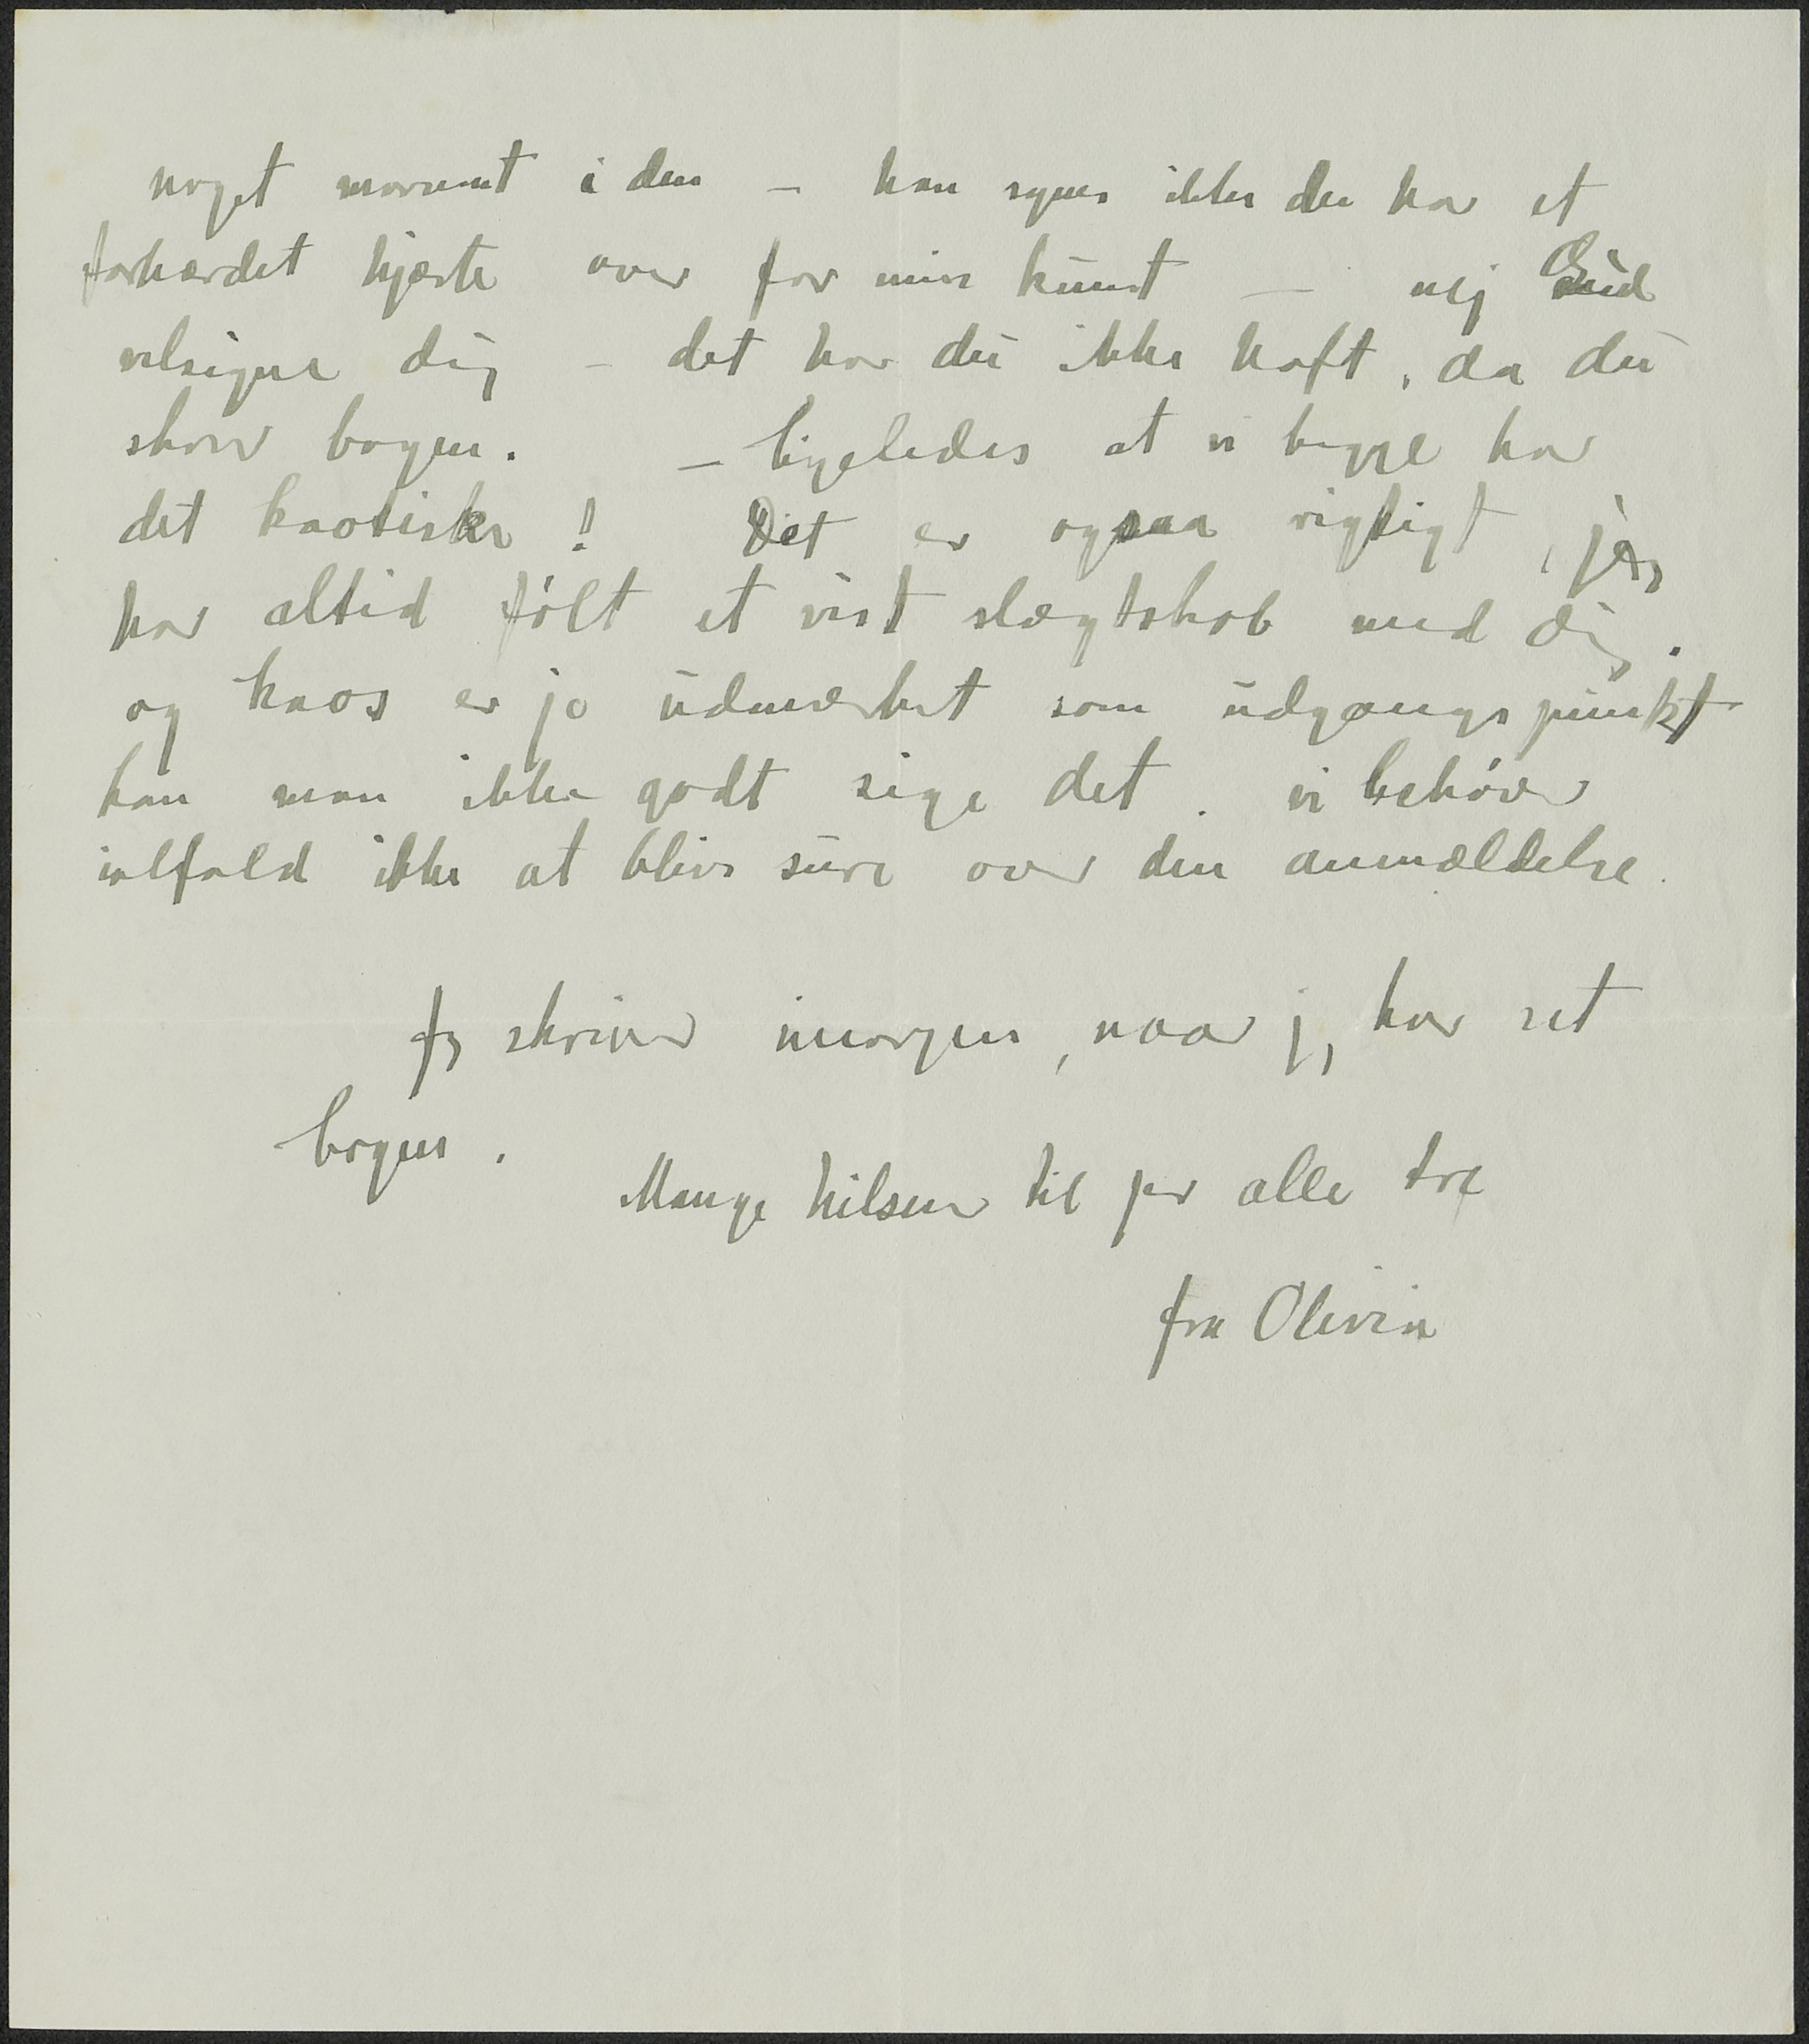 noget morsomt i den – han synes ikke du har et
forhærdet hjærte over for min kunst – nej Gud
velsigne dig – det har du ikke haft, da du
skrev bogen. – ligeledes at vi begge har
det kaotiske! Det er ogsaa rigtigt, jeg
har altid følt et vist slægtskab med dig.
og kaos er jo udmærket som udgangspunkt
kan man ikke godt sige det. vi behøver
ialfald ikke at blive sure over den anmældelse.
Jeg skriver imorgen, naar jeg har set
bogen.
Mange hilsner til jer alle tre
fra Olivia